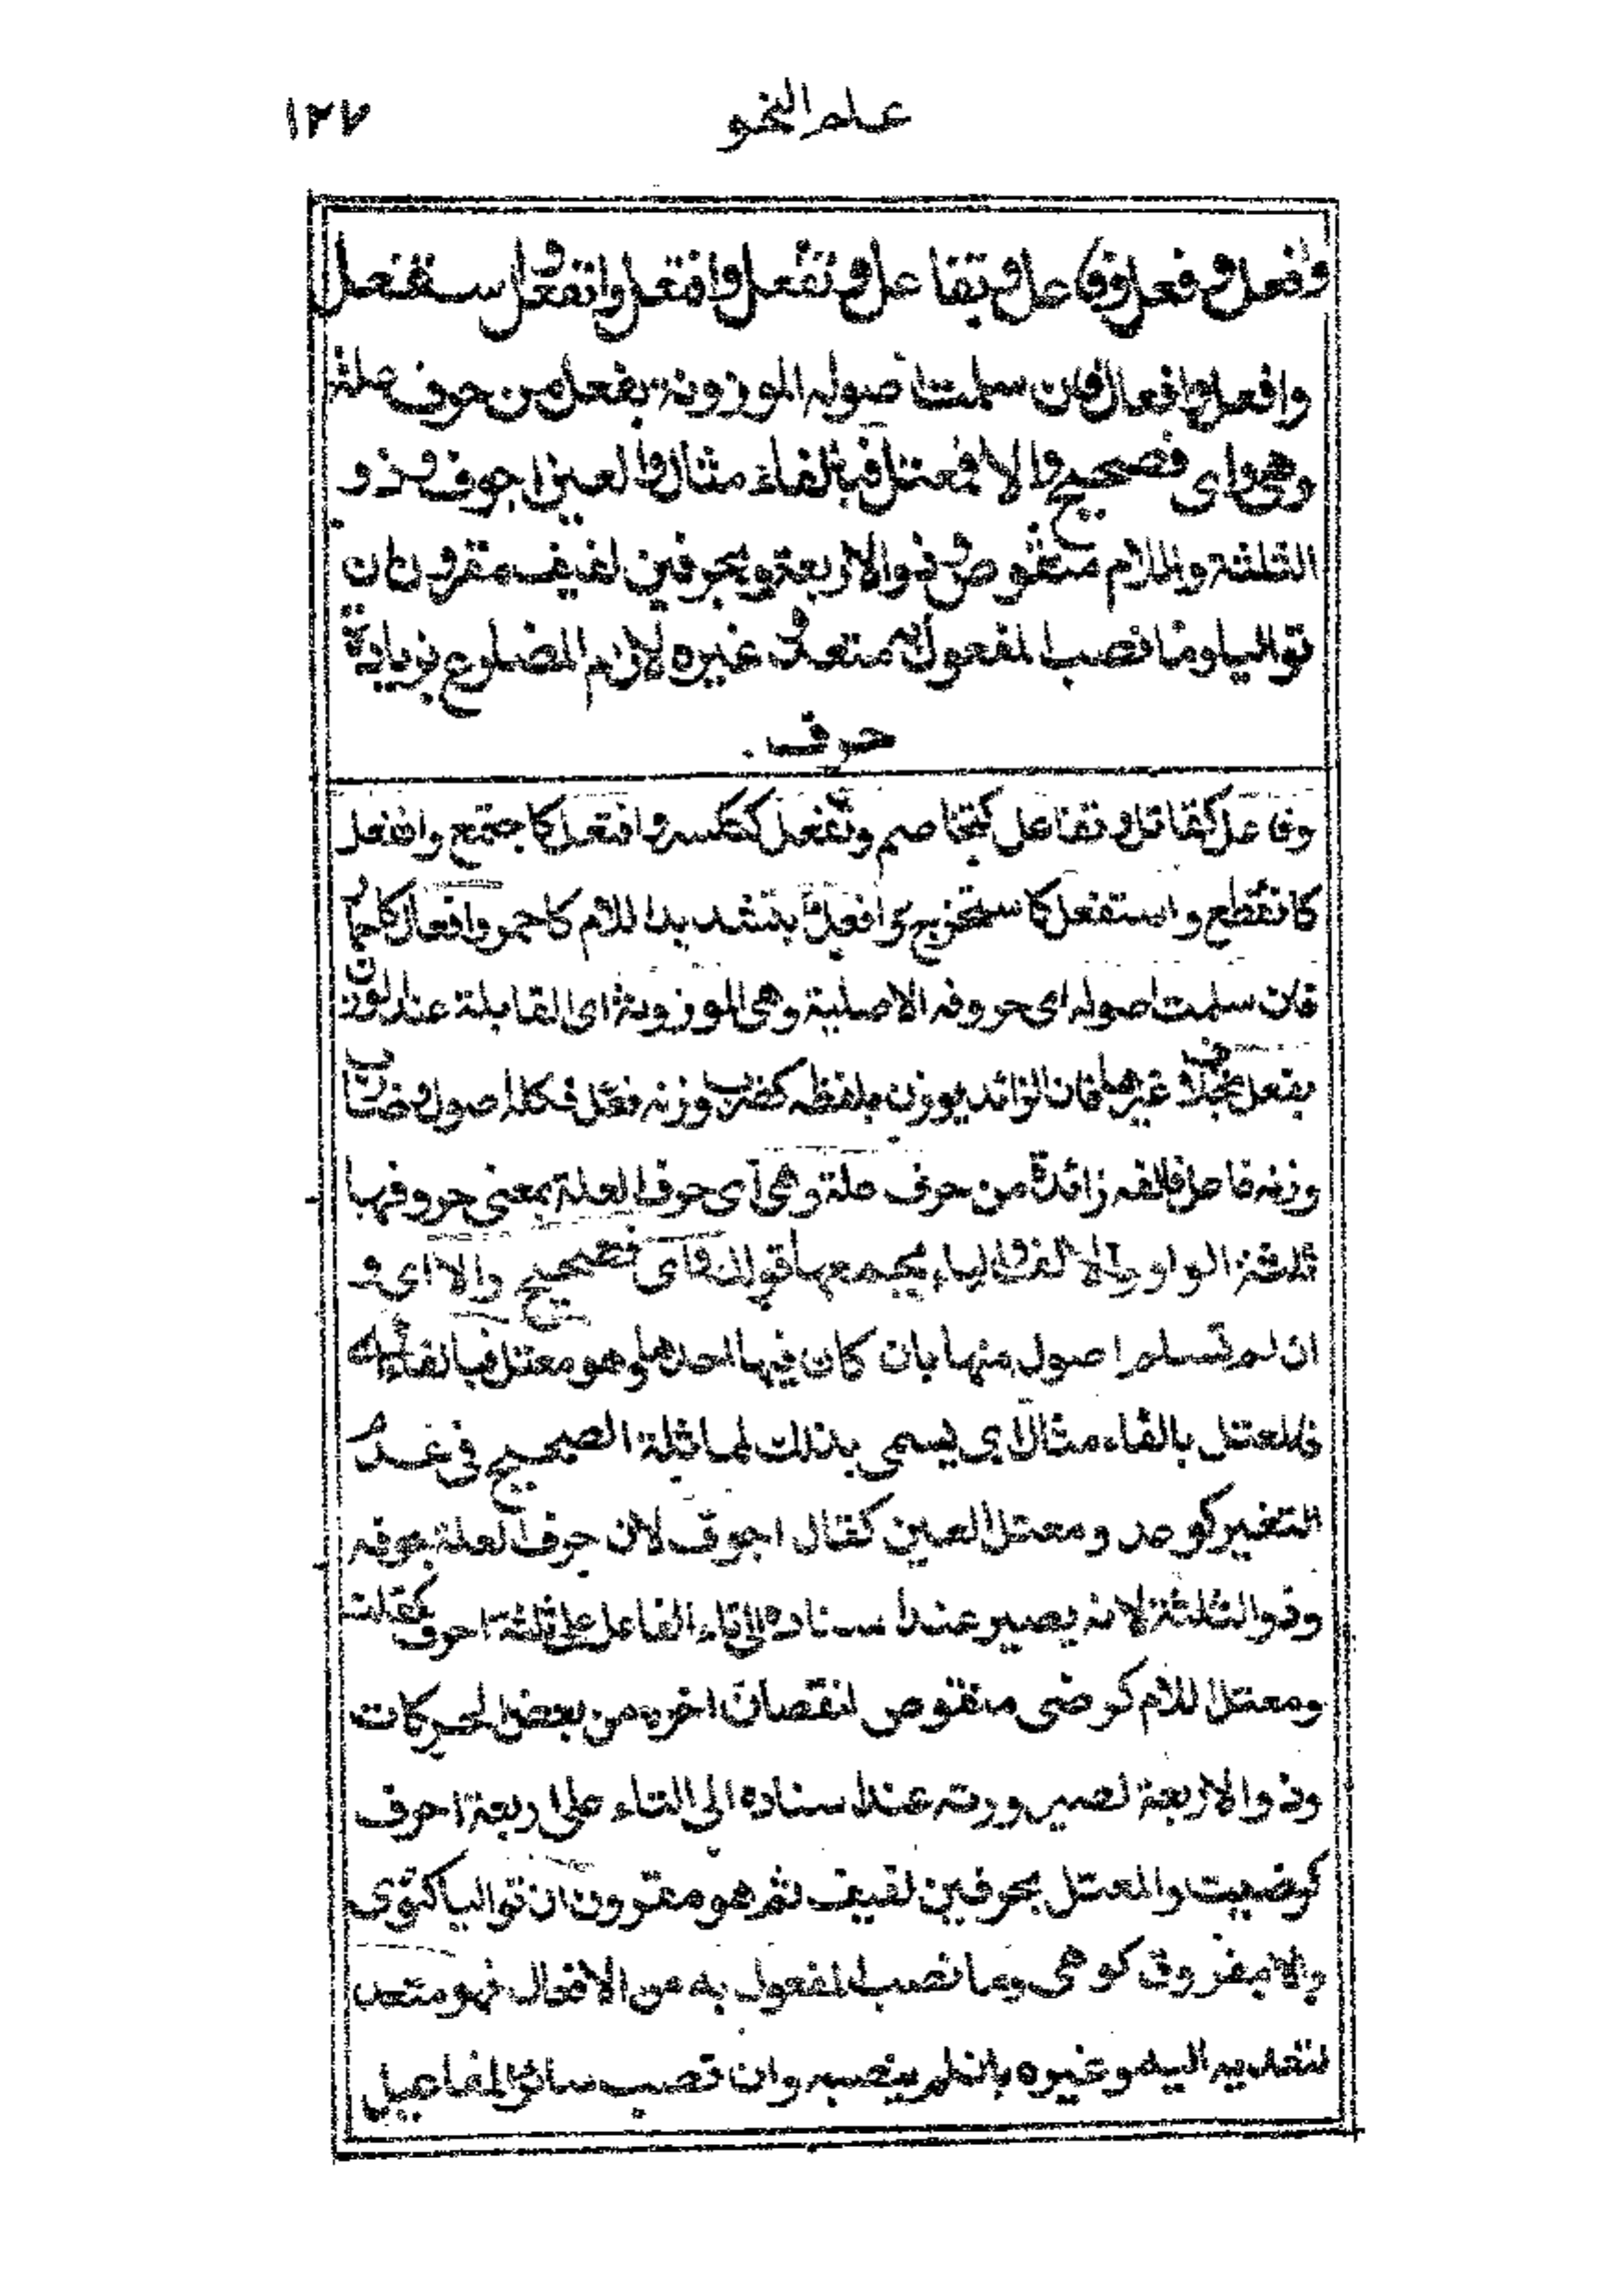 علم النحو
١٢٧
وافعل و فعل وفاعل وتفاعل وتفعل وافتعل وانفعل واستفعل
وافعل وافعال فان سلمت اصوله الموزونة بفعل من حرف علة
وهى واى فصحيح والا فمعتل فبالفاء مثال والعين اجوف وذو
الثلثة واللام منقوص وذو الاربعة وبحرفين لفيف مقرون ان
تواليا وما نصب المفعول به متعد وغيره لازم المضارع بزيادة
حرف
وفاعل كقاتل و تفاعل كتخاصم وتفعل كتكسر وافتعل كاجتمع وانفعل
كانقطع و استفعل كاستخرج وافعل بتشديد اللام كاحمر وافعال كاحمار
فان سلمت اصوله اى حروفه الاصلية وهى الموزونة اى المقابلة عند الوزن
بفعل بخلاف غيرها فان الزائد يوزن بلفظه كضرب وزنه فعل فكله اصول وضارب
وزنه فاعل فالفه زائدة من حرف علة وهى اى حرف العلة بمعنى حروفها
ثلثة الواو والالف والياء يجمعها قولك واى فصحيح والا اى و
ان لم تسلم اصول منها بان كان فيها احدها وهو معتل فبالفاء اى
فالمعتل بالفاء مثال اى يسمى بذلك لمماثلة الصحيح فى عدم
التغير كوعد ومعتل العين كقال اجوف لان حرف العلة جوفه
وذو الثلثة لانه يصير عند اسناده الى تاء الفاعل على ثلثة احرف كقلت
ومعتل اللام كرضى منقوص لنقصان اخره من بعض الحركات
وذو الاربعة لصيرورته عند اسناده الى التاء على اربعة احرف
كرضيت والمعتل بحرفين لفيف ثم هو مقرون ان تواليا كثوى
والا مفروق كوعى وما نصب المفعول به من الافعال فهو متعد
لتعديه اليه وغيره بان لم ينصبه وان نصب سائر المفاعيل